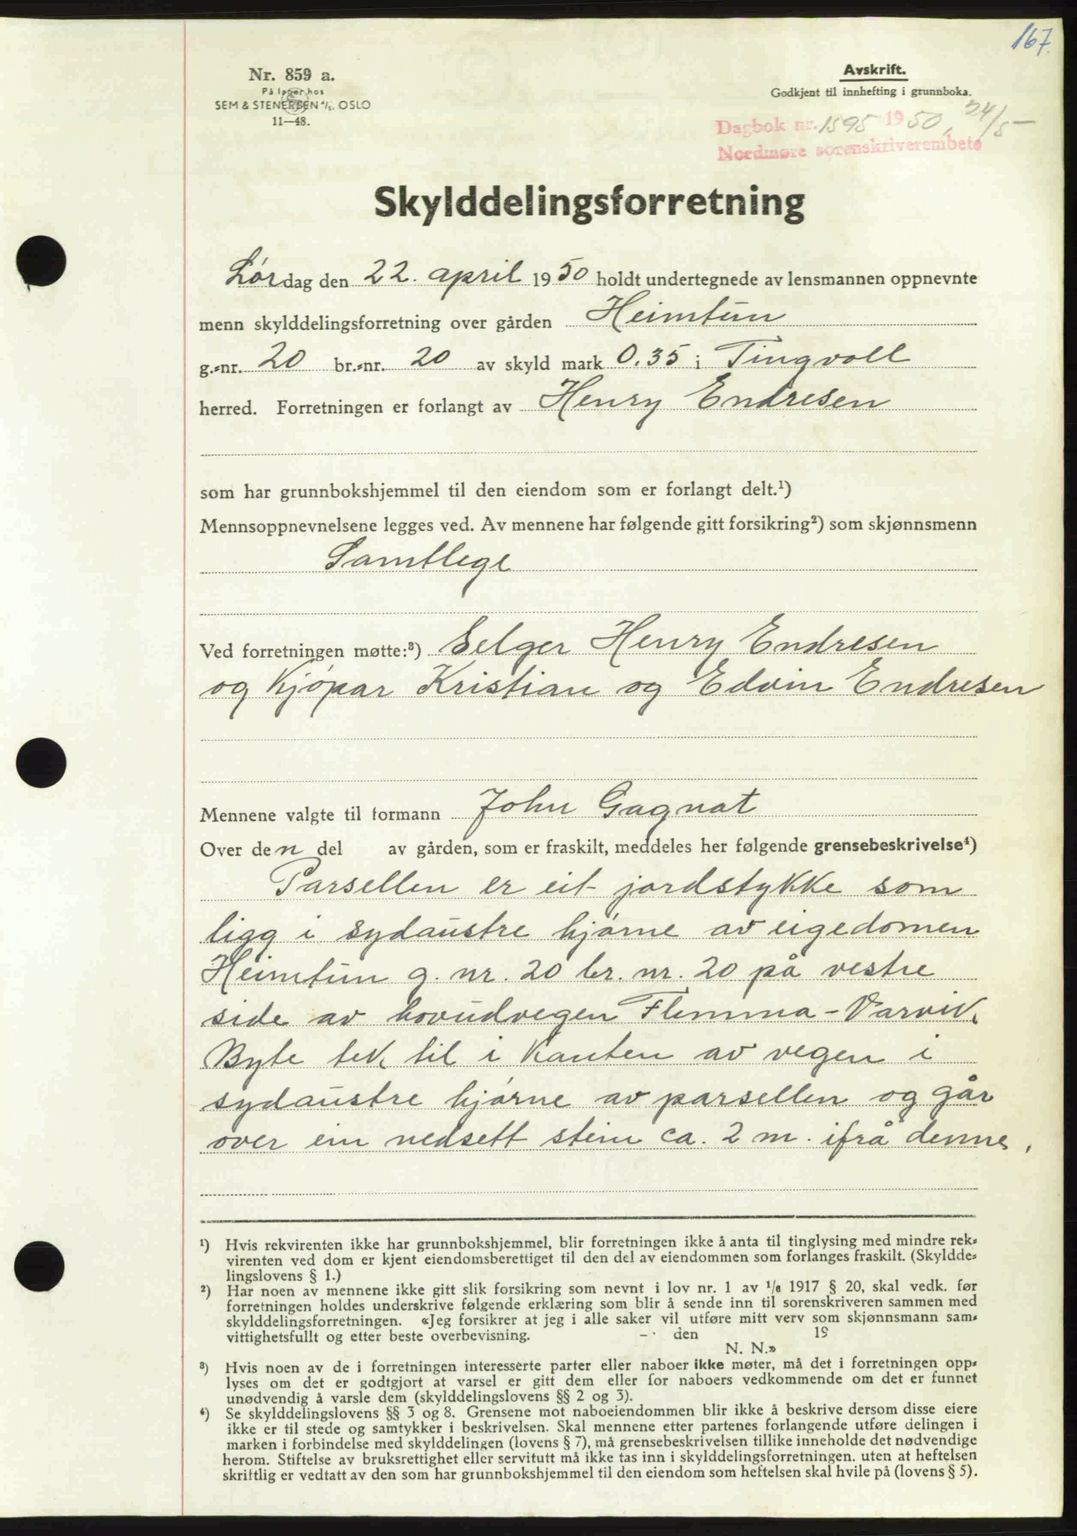 167.
Nr. 859 a.
På lager hos
SEM & STENERSEN A/S. OSLO
11—48.
Avskrift.
Godkjent til innhefting i grunnboka.
Dagbok nr. 1595 1950, 24/5 -
Nordmøre sorenskriverembete
Skylddelingsforretning
Lørdag den 22. april 1950 holdt undertegnede av lensmannen oppnevnte
menn skylddelingsforretning over gården Heimtun
g.-nr. 20 br.-nr. 20 av skyld mark 0.35 i Tingvoll
herred. Forretningen er forlangt av Henry Endresen
som har grunnbokshjemmel til den eiendom som er forlangt delt.¹)
Mennsoppnevnelsene legges ved. Av mennene har følgende gitt forsikring²) som skjønnsmenn
Samtlege
Ved forretningen møtte:³) Selger Henry Endresen
og Kjøpar Kristian og Edvin Endresen
Mennene valgte til formann John Gagnat
Over den del av gården, som er fraskilt, meddeles her følgende grensebeskrivelse⁴)
Parsellen er eit jordstykke som
ligg i sydaustre hjørne av eigedomen
Heimtun g. nr. 20 br. nr. 20 på vestre
side av hovudvegen Flemma - Varvik.
Byte tek til i kanten av vegen i
sydaustre hjørne av parsellen og går
over ein nedsett stein ca. 2 m. ifrå denne,
¹) Hvis rekvirenten ikke har grunnbokshjemmel, blir forretningen ikke å anta til tinglysing med mindre rek-
virenten ved dom er kjent eiendomsberettiget til den del av eiendommen som forlanges fraskilt. (Skyldde-
lingslovens § 1.)
²) Har noen av mennene ikke gitt slik forsikring som nevnt i lov nr. 1 av 1/6 1917 § 20, skal vedk. før
forretningen holdes underskrive følgende erklæring som blir å sende inn til sorenskriveren sammen med
skylddelingsforretningen. «Jeg forsikrer at jeg i alle saker vil utføre mitt verv som skjønnsmann sam-
vittighetsfullt og etter beste overbevisning. — den 19
N. N.»
³) Hvis noen av de i forretningen interesserte parter eller naboer ikke møter, må det i forretningen opp-
lyses om det er godtgjort at varsel er gitt dem eller for naboers vedkommende om det er funnet
unødvendig å varsle dem (skylddelingslovens §§ 2 og 3).
⁴) Se skylddelingslovens §§ 3 og 8. Grensene mot naboeiendommen blir ikke å beskrive dersom disse eiere
ikke er til stede og samtykker i beskrivelsen. Skal mennene etter partenes forlangende utføre delingen i
marken i forbindelse med skylddelingen (lovens § 7), må grensebeskrivelsen tillike inneholde det nødvendige
herom. Stiftelse av bruksrettighet eller servitutt må ikke tas inn i skylddelingsforretningen. uten at heftelsen
skriftlig er vedtatt av den som har grunnbokshjemmel til den eiendom som heftelsen skal hvile på (lovens § 5).